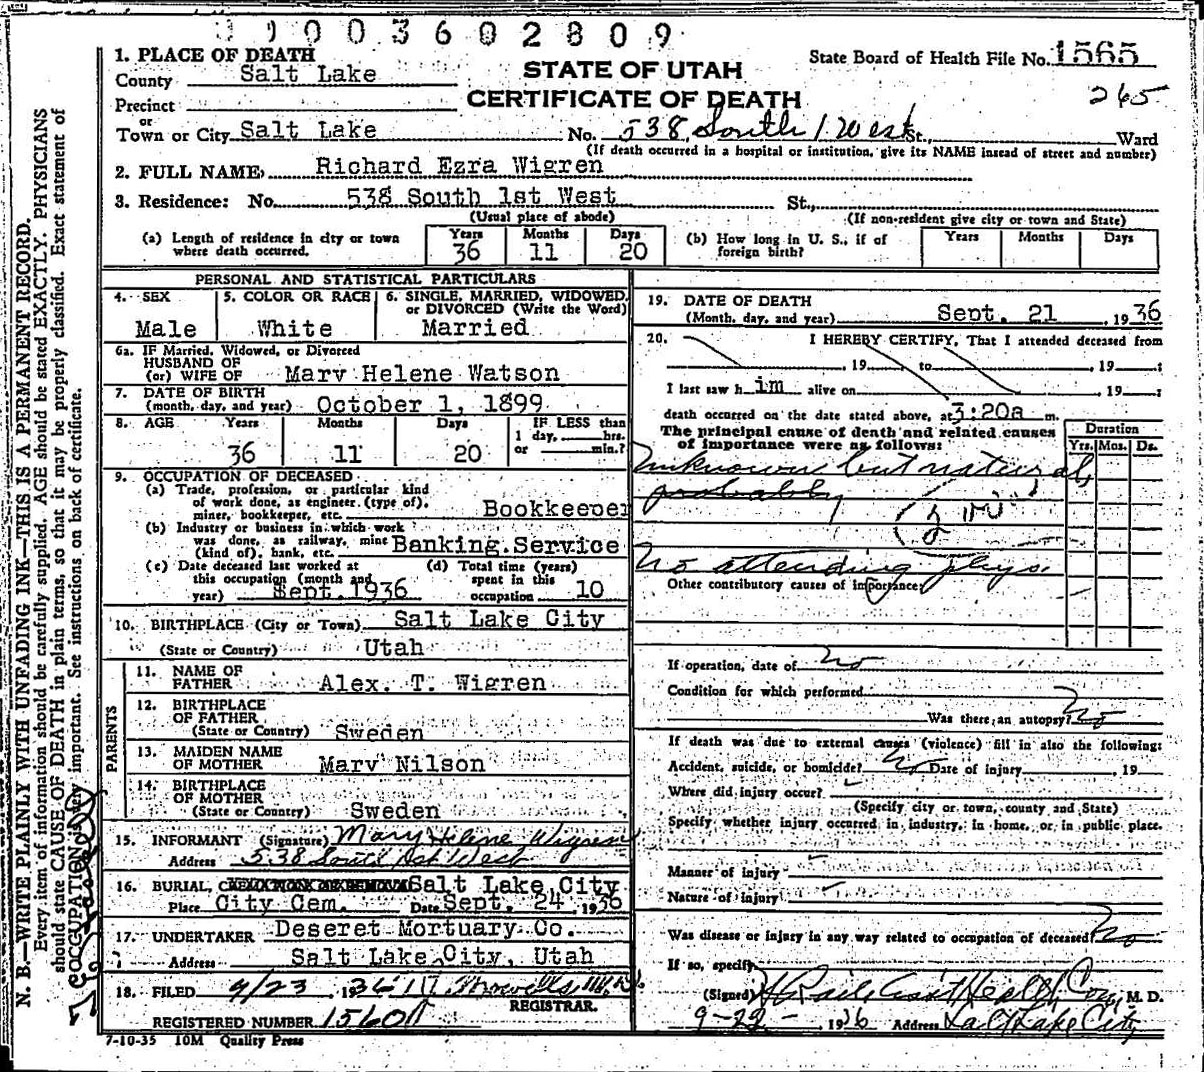 0003602809
1. PLACE OF DEATH
State Board of Health File No. 1565
County Salt Lake
STATE OF UTAH
Precinct
CERTIFICATE OF DEATH
265
or
Town or City Salt Lake No. 538 South 1 West St., Ward
(If death occurred in a hospital or institution, give its NAME insead of street and number)
2. FULL NAME, Richard Ezra Wigren
3. Residence: No. 538 South 1st West St.,
(Usual place of abode) (If non-resident give city or town and State)
(a) Length of residence in city or town where death occurred. Years 36 Months 11 Days 20
(b) How long in U. S., if of foreign birth? Years Months Days
PERSONAL AND STATISTICAL PARTICULARS
4. SEX Male
5. COLOR OR RACE White
6. SINGLE, MARRIED, WIDOWED, or DIVORCED (Write the Word) Married
6a. IF Married, Widowed, or Divorced
HUSBAND OF
(or) WIFE OF Mary Helene Watson
7. DATE OF BIRTH
(month, day, and year) October 1, 1899
8. AGE Years Months Days IF LESS than
1 day, hrs.
36 11 20 or min.?
9. OCCUPATION OF DECEASED
(a) Trade, profession, or particular kind
of work done, as engineer (type of),
miner, bookkeeper, etc. Bookkeeper
(b) Industry or business in which work
was done, as railway, mine
(kind of), bank, etc. Banking Service
(c) Date deceased last worked at
this occupation (month and
year) Sept. 1936
(d) Total time (years)
spent in this
occupation 10
10. BIRTHPLACE (City or Town) Salt Lake City
(State or Country) Utah
PARENTS
11. NAME OF
FATHER Alex. T. Wigren
12. BIRTHPLACE
OF FATHER
(State or Country) Sweden
13. MAIDEN NAME
OF MOTHER Mary Nilson
14. BIRTHPLACE
OF MOTHER
(State or Country) Sweden
15. INFORMANT (Signature) Mary Helene Wigren
Address 538 South 1st West
16. BURIAL, Salt Lake City
Place City Cem. Date Sept. 24, 1936
17. UNDERTAKER Deseret Mortuary Co.
Address Salt Lake City, Utah
18. FILED 9/23 1936
REGISTRAR.
REGISTERED NUMBER 1560
7-10-35 10M Quality Press
19. DATE OF DEATH
(Month, day, and year) Sept. 21, 1936
20. I HEREBY CERTIFY, That I attended deceased from
, 19 to , 19 ;
I last saw him alive on , 19 ;
death occurred on the date stated above, at 3:20a m.
The principal cause of death and related causes
of importance were as follows:
Duration
Yrs. Mos. Ds.
Unknown but natural,
probably
No attending phys.
Other contributory causes of importance:
If operation, date of no
Condition for which performed
Was there an autopsy? no
If death was due to external causes (violence) fill in also the following:
Accident, suicide, or homicide? No Date of injury , 19
Where did injury occur?
(Specify city or town, county and State)
Specify whether injury occurred in industry, in home, or in public place.
Manner of injury
Nature of injury
Was disease or injury in any way related to occupation of deceased? no
If so, specify
(Signed) M. D.
9-22-, 1936 Address Salt Lake City
N. B.—WRITE PLAINLY WITH UNFADING INK—THIS IS A PERMANENT RECORD.
Every item of information should be carefully supplied. AGE should be stated EXACTLY. PHYSICIANS
should state CAUSE OF DEATH in plain terms, so that it may be properly classified. Exact statement of
OCCUPATION is very important. See instructions on back of certificate.